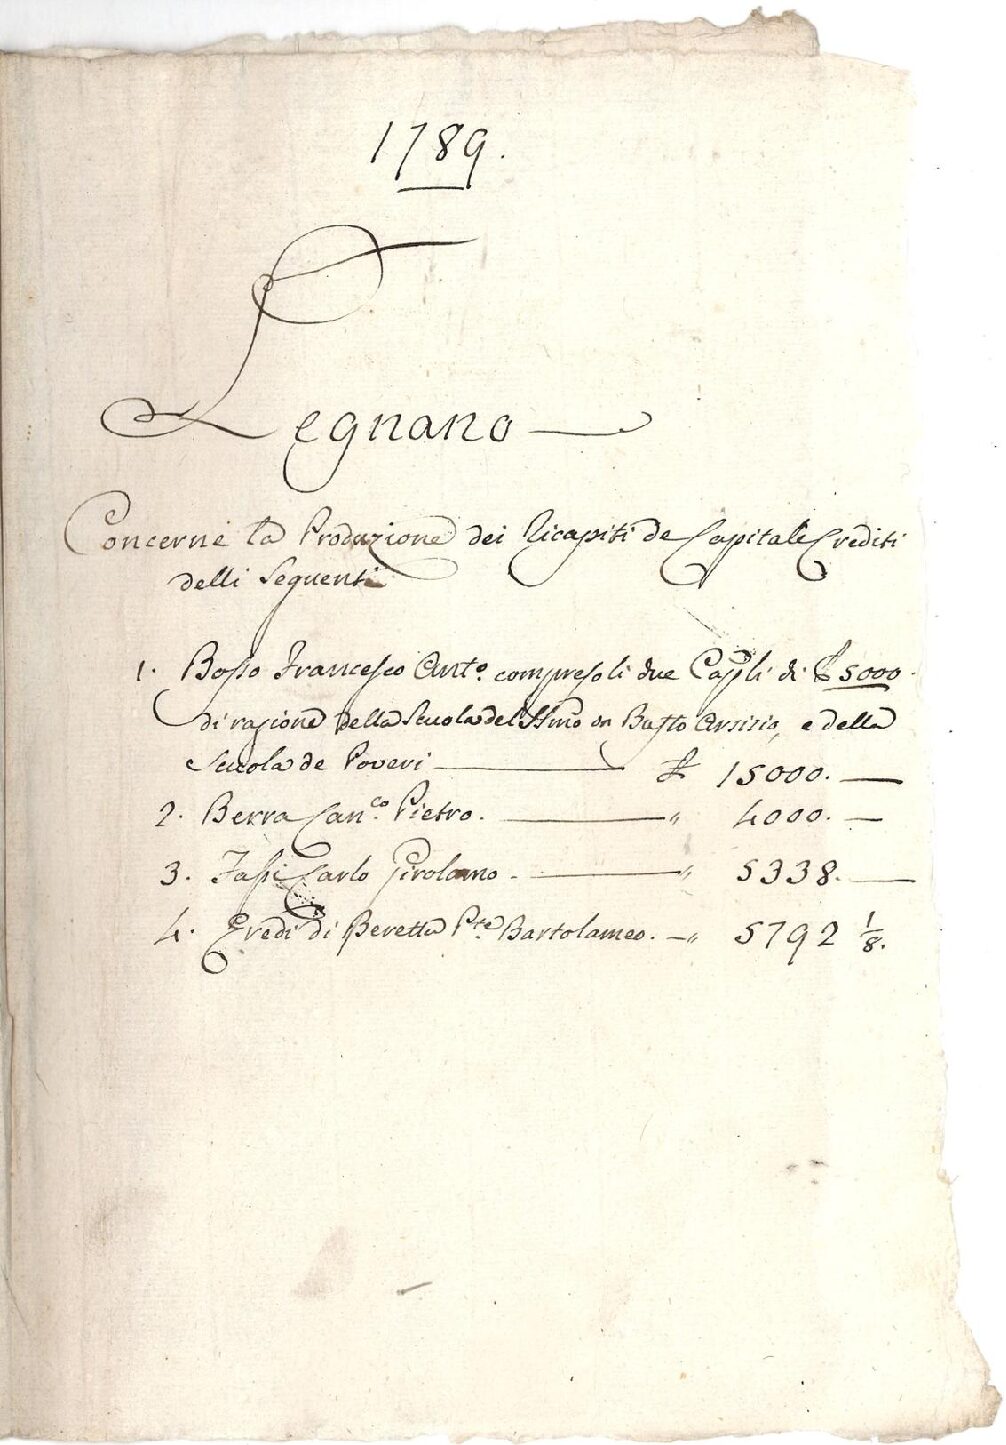 1789.
Legnano
Concerne la Produzione dei Ricapiti de Capitali Crediti
delli Seguenti
1. Bosso Francesco Anto. compresoli due Capli di £ 5000.
di ragione della Scuola del SSmo in Busto Arsizio, e della
Scuola de Poveri £ 15000.
2. Berra Canco. Pietro. " 4000.
3. Carlo Girolamo. " 5338.
4. Eredi di Beretta Pte. Bartolameo. " 5792 1/8.